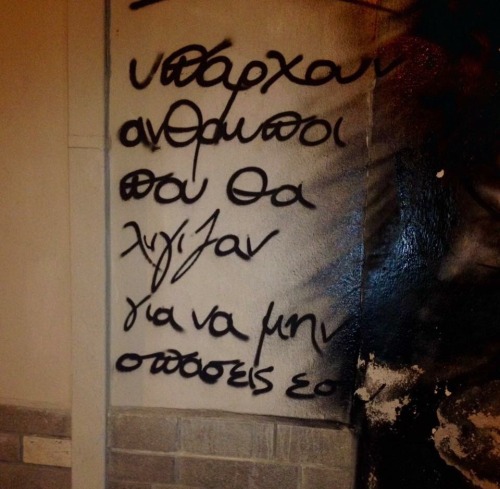 υπάρχουν
ανθρωποι
που θα
λυγιζαν
για να μην
σπάσεις εσυ